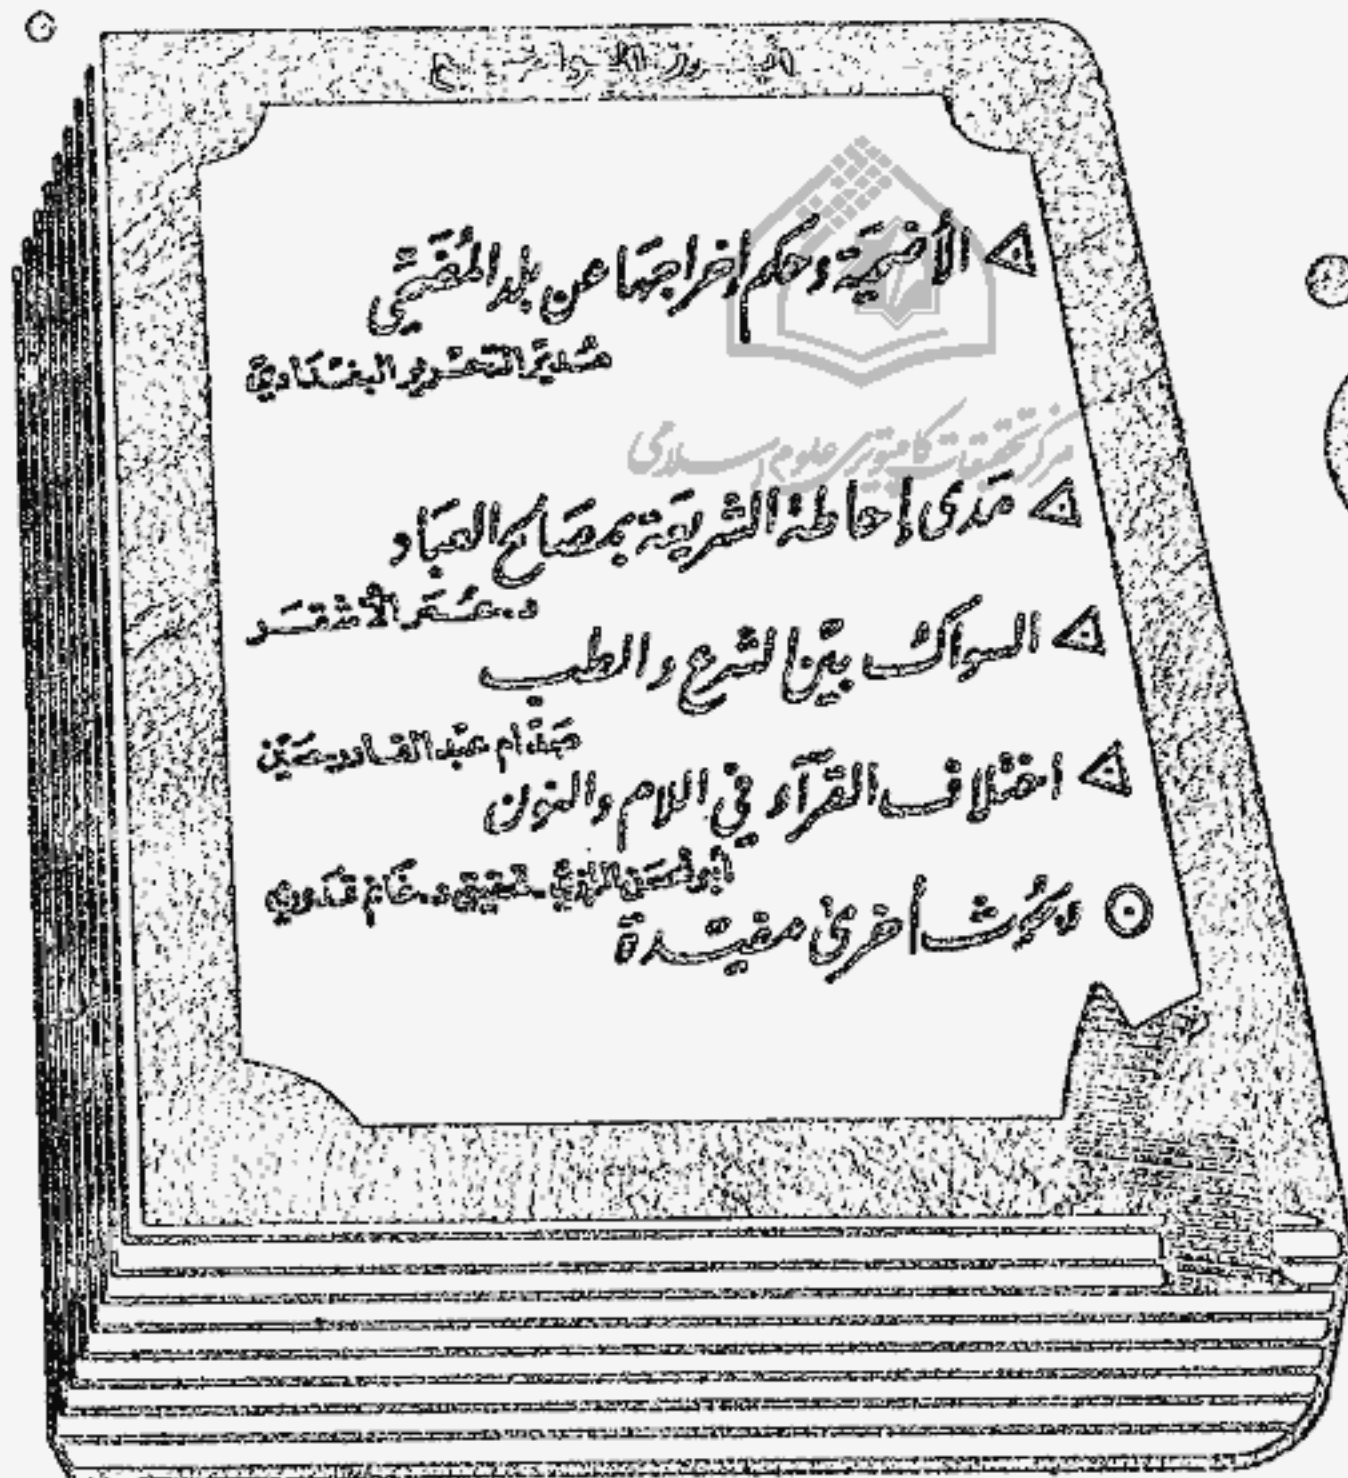 الأضحيَة وحكم إخراجهَا عن بلد المُضَحِّي
مُديرُ التحرير البغدادي
مركز تحقیقات کامپیوتری علوم اسلامی
مَدَى إحاطة الشريعَة بمصَالح العبَاد
د. عُمَر الأشقَر
السواك بيَن الشرع والطب
عبد القادر
اختلاف القرّآء في اللام والنون
أبو الحسن الرازي - تحقيق د. غانم قدوري
وبحُوث أخرىٰ مفيَدة